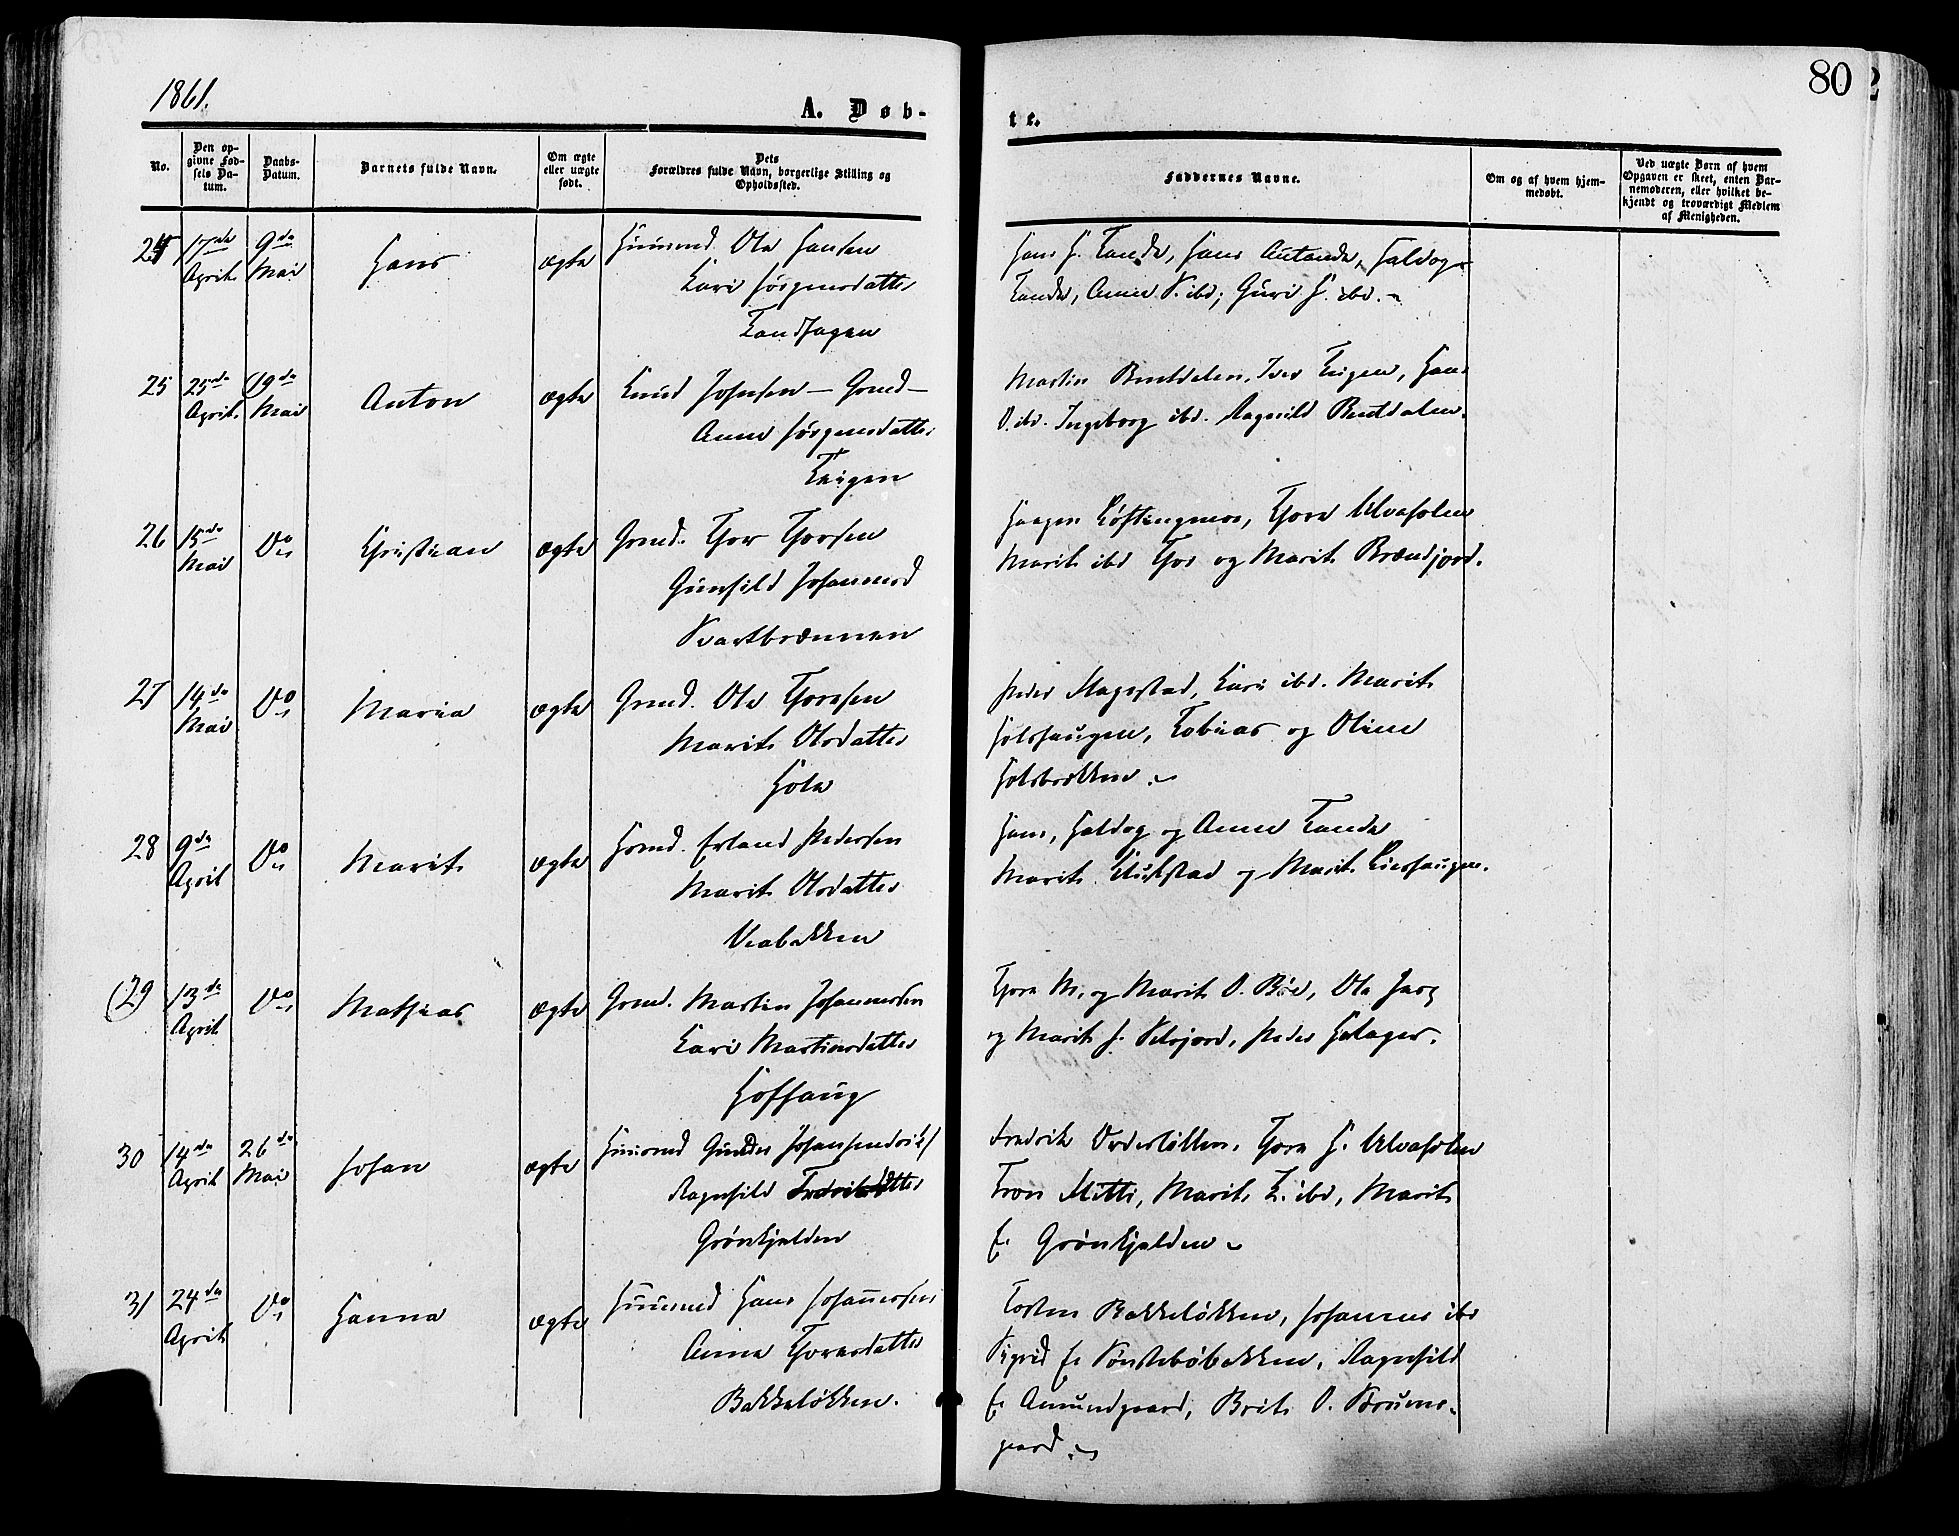 1861.
80
A. Døb-
te.
No.
Den op-
givne Fød-
sels Da-
tum.
Daabs-
Datum.
Barnets fulde Navn.
Om ægte
eller uægte
født.
Dets
Forældres fulde Navn, borgerlige Stilling og
Opholdssted.
Faddernes Navne.
Om og af hvem hjem-
medøbt.
Ved uægte Børn af hvem
Opgaven er skeet, enten Bar-
nemoderen, eller hvilket be-
kjendt og troværdigt Medlem
af Menigheden.
24 17de April 9de Mai Hans ægte Huusmd. Ole Hansen
Kari Jørgensdatter
Tandhagen
Hans H. Tande, Hans Autande, Haldog
Tande, Anne ibd; Guri H. ibd.
25 25de April 19de Mai Anton ægte Knud Johnsen - Grmd -
Anne Jørgensdatter
Teigen
Martin Bretdalen, Iver Teigen, Hans
O. ibd. Ingeborg ibd. Ragnild Bretdalen.
26 15de Mai Do Christian ægte Grmd. Thor Thorsen
Gunhild Johannesd
Svartbrænnen
Haagen Løftingmoe, Thore Ulvaholen
Marit ibd Thor og Marit Brændjord.
27 14de Mai Do Maria ægte Grmd. Ole Thoresen
Marit Olsdatter
Hole
Peder Slagestad, Kari ibd. Marit
Holshaugen, Tobias og Oline
Holsbrekken.
28 9de April Do Marit ægte Husmd. Erland Pedersen
Marit Olsdatter
Veabakken
Hans, Haldog og Anne Tande
Marit og Marit
29 13de April Do Mathias ægte Grmd. Martin Johannessen
Kari Martinsdatter
Hoffaug
Thore M. og Marit O. Bøe, Ola
og Marit H. Selsjord, Peder Holager.
30 14de April 26de Mai Johan ægte Huusmd Gudder
Ragnhild
Grønkjelden
Fredrik Ordeløkken, Thore H. Ulvaholen
Tron Slette, Marit T. ibd, Marit
E. Grønkjelden
31 24de April Do Hanna ægte Huusmd Hans Johannessen
Anne Thoresdatter
Bakkeløkken.
Torsten Bakkeløkken, Johannes ibd
Sigrid E. Sønstebøbakken, Ragnhild
E. Amundgaard, Brit O. Brume-
gaard